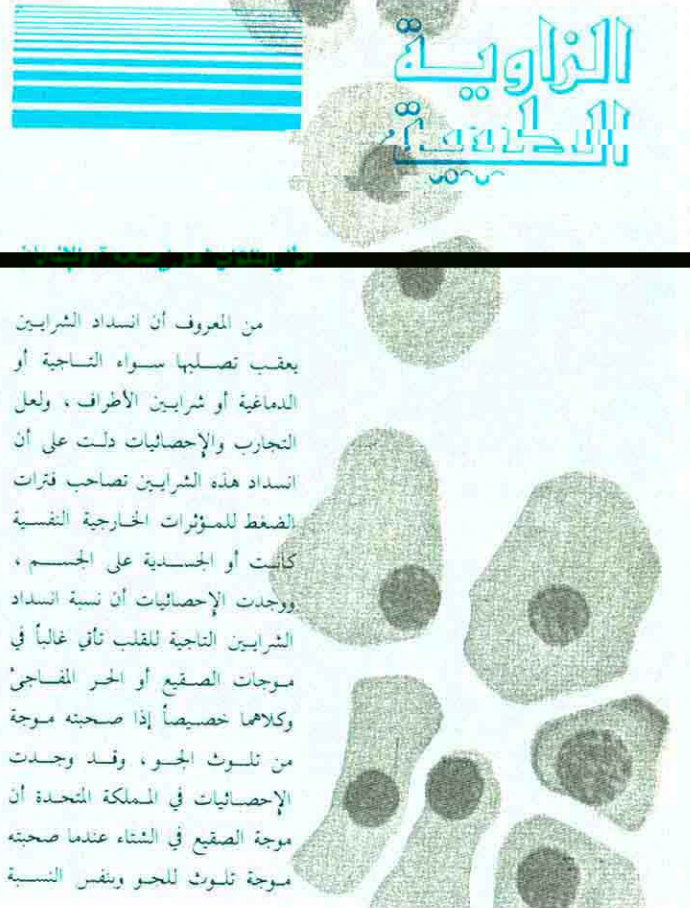 الزاوية
الطبية
من المعروف أن انسداد الشرايين
يعقب تصلبها سواء التاجية أو
الدماغية أو شرايين الأطراف ، ولعل
التجارب والإحصائيات دلت على أن
انسداد هذه الشرايين تصاحب فترات
الضغط للمؤثرات الخارجية النفسية
كانت أو الجسدية على الجسم ،
ووجدت الإحصائيات أن نسبة انسداد
الشرايين التاجية للقلب تأتي غالباً في
موجات الصقيع أو الحر المفاجئ
وكلاهما خصيصاً إذا صحبته موجة
من تلوث الجو ، وقد وجدت
الإحصائيات في المملكة المتحدة أن
موجة الصقيع في الشتاء عندما صحبته
موجة تلوث للجو وبنفس النسبة